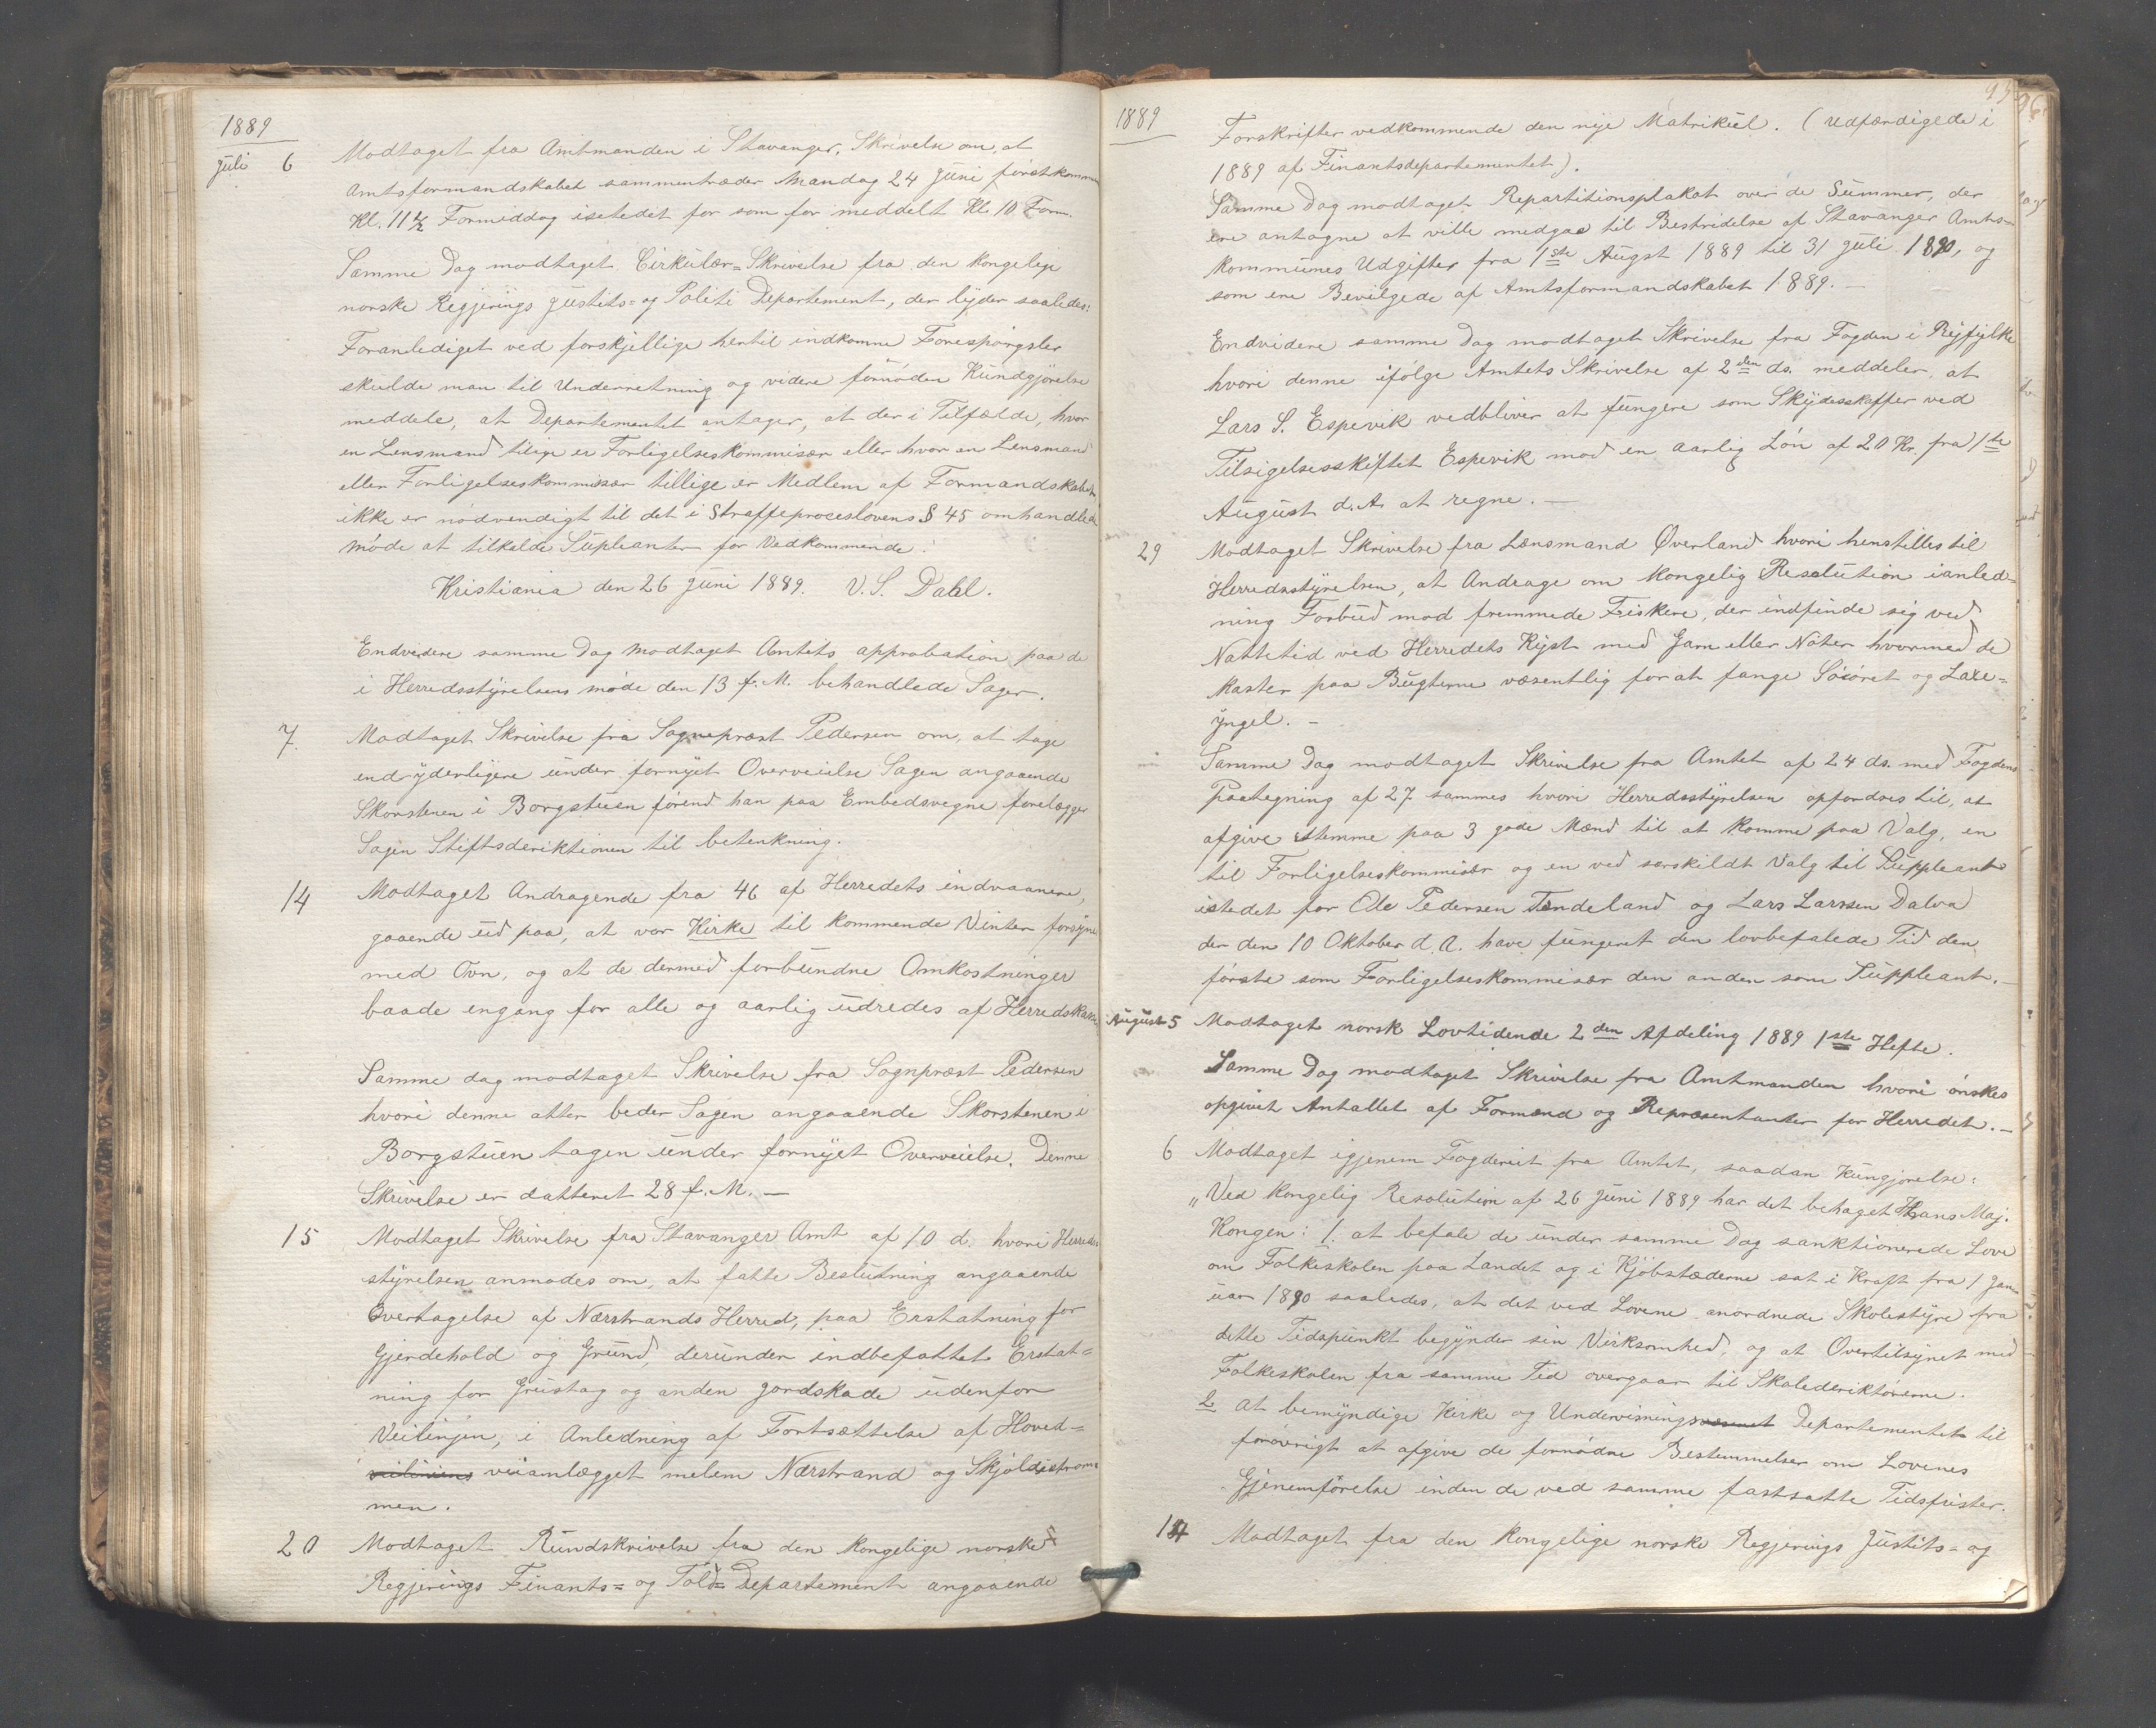 1889
Juli 6 Modtaget fra Amtmanden i Stavanger, Skrivelse om, at
Amtsformandskabet sammentræder Mandag 24 Juni førstkommen
Kl. 11½ Formiddag istedet for som før meddelt Kl. 10 Form.
Samme Dag modtaget Cirkulær=Skrivelse fra den kongelige
norske Regjerings Justits= og Politi Departement, der lyder saaledes:
Foranlediget ved forskjellige hertil indkomne Forespørgsler
skulde man til Underretning og videre fornøden Kundgjørelse
meddele, at Departementet antager, at der i Tilfælde, hvor
en Lensmand tilige er Forligelseskommisær eller hvor en Lensmand
eller Forligelseskommissær tillige er Medlem af Formandskabet,
ikke er nødvendigt til det i Straffeproceslovens § 45 omhandlede
Møde at tilkalde Supleanter for Vedkommende.
Kristiania den 26 Juni 1889. V. S. Dahl.
Endvedere samme Dag modtaget Amtets approbation paa de
i Herredsstyrelsens møde den 13 f. M. behandlede Sager.
7. Modtaget Skrivelse fra Sognepræst Pedersen om, at tage
end yderligere under fornyet Overveielse Sagen angaaende
Skorstenen i Borgstuen førend han paa Embedsvegne forelægger
Sagen Stiftsderiktionen til betenkning.
14 Modtaget Andragende fra 46 af Herredets indvaanere,
gaaende ud paa, at vor Kirke til kommende Vinter forsyne
med Ovn, og at de dermed forbundne Omkostninger
baade engang for alle og aarlig udredes af Herredskassen
Samme dag modtaget Skrivelse fra Sognpræst Pedersen
hvori denne atter beder Sagen angaaende Skorstenen i
Borgstuen tagen under fornyet Overveielse. Denne
Skrivelse er datteret 28 f. M. —
15 Modtaget Skrivelse fra Stavanger Amt af 10 d. hvori Herreds=
styrelsen anmodes om, at fatte Beslutning angaaende
Overtagelse af Nærstrands Herred, paa Erstatning for
Gjerdehold og Grund, derunder indbefattet Erstat=
ning for Grustag og anden Jordskade udenfor
Veilinjen, i Anledning af Fortsættelse af Hoved=
veiliniens veianlægget melem Nærstrand og Skjoldestrøm=
men.
20 Modtaget Rundskrivelse fra den kongelige norske
Regjerings Finants= og Told= Departement angaaende
95 96
1889
Forskrifter vedkommende den nye Matrikul. (udfærdigede i
1889 af Finantsdepartementet).
Samme Dag modtaget Repartitionsplakat over de Summer, der
ere antagne at ville medgaa til Bestridelse af Stavanger Amts=
kommunes Udgifter fra 1ste Augst 1889 til 31 Juli 1890, og
som ere Bevilgede af Amtsformandskabet 1889. —
Endvidere samme Dag modtaget Skrivelse fra Fogden i Ryfylke
hvori denne ifølge Amtets Skrivelse af 2den ds. meddeler at
Lars S. Espevik vedbliver at fungere som Skydsskaffer ved
Tilsigelsesskiftet Espevik mod en aarlig Løn af 20 Kr. fra 1ste
August d. A. at regne. —
29 Modtaget Skrivelse fra Lænsmand Øverland hvori henstilles til
Herredsstyrelsen, at Andrage om kongelig Resolution ianled=
ning Forbud mod fremmede Fiskere, der indfinde sig ved
Nattetid ved Herredets Kyst med Garn eller Nøter hvormed de
kaster paa Bugterne væsentlig for at fange Søiøret og Laxe=
yngel. —
Samme Dag modtaget Skrivelse fra Amtet af 24 ds. med Fogdens
Paategning af 27 sammes hvori Herredsstyrelsen opfordres til, at
afgive stemme paa 3 gode Mænd til at komme paa Valg, en
til Forligelseskommisær og en ved særskildt Valg til Suppleant
istedet for Ole Pedersen Tendeland og Lars Larssen Dalva
der den 10 Oktober d. A. have fungeret den lovbefalede Tid den
første som Forligelseskommisær den anden som Suppleant. —
August 5 Modtaget norsk Lovtidende 2den Afdeling 1889 1ste Hefte.
Samme Dag modtaget Skrivelse fra Amtmanden hvori ønskes
opgivet Antallet af Formænd og Repræsentanter for Herredet. —
6 Modtaget igjenem Fogderiet fra Amtet, saadan Kungjørelse:
"Ved kongelig Resolution af 26 Juni 1889 har det behaget Hans Maj.
Kongen: 1. at befale de under samme Dag sanktionerede Love
om Folkeskolen paa Landet og i Kjøbstæderne sat i Kraft fra 1 Jan=
uar 1890 saaledes, at det ved Lovene anordnede Skolestyre fra
dette Tidspunkt begynder sin Virksomhed, og at Overtilsynet med
Folkeskolen fra samme Tid overgaar til Skolederiktørerne.
2 at bemyndige Kirke og Undervisningsvæsenet Departementet til
forøvrigt at afgive de fornødne Bestemmelser om Lovenes
Gjenemførelse inden de ved samme fastsatte Tidsfrister.
14 Modtaget fra den kongelige norske Regjerings Justits= og